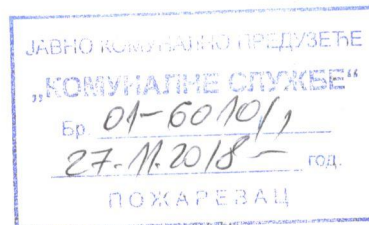 ЈАВНО КОМУНАЛНО ПРЕДУЗЕЋЕ
„КОМУНАЛНЕ СЛУЖБЕ“
Бр. 01-6010/1
27.11.2018 - год.
ПОЖАРЕВАЦ